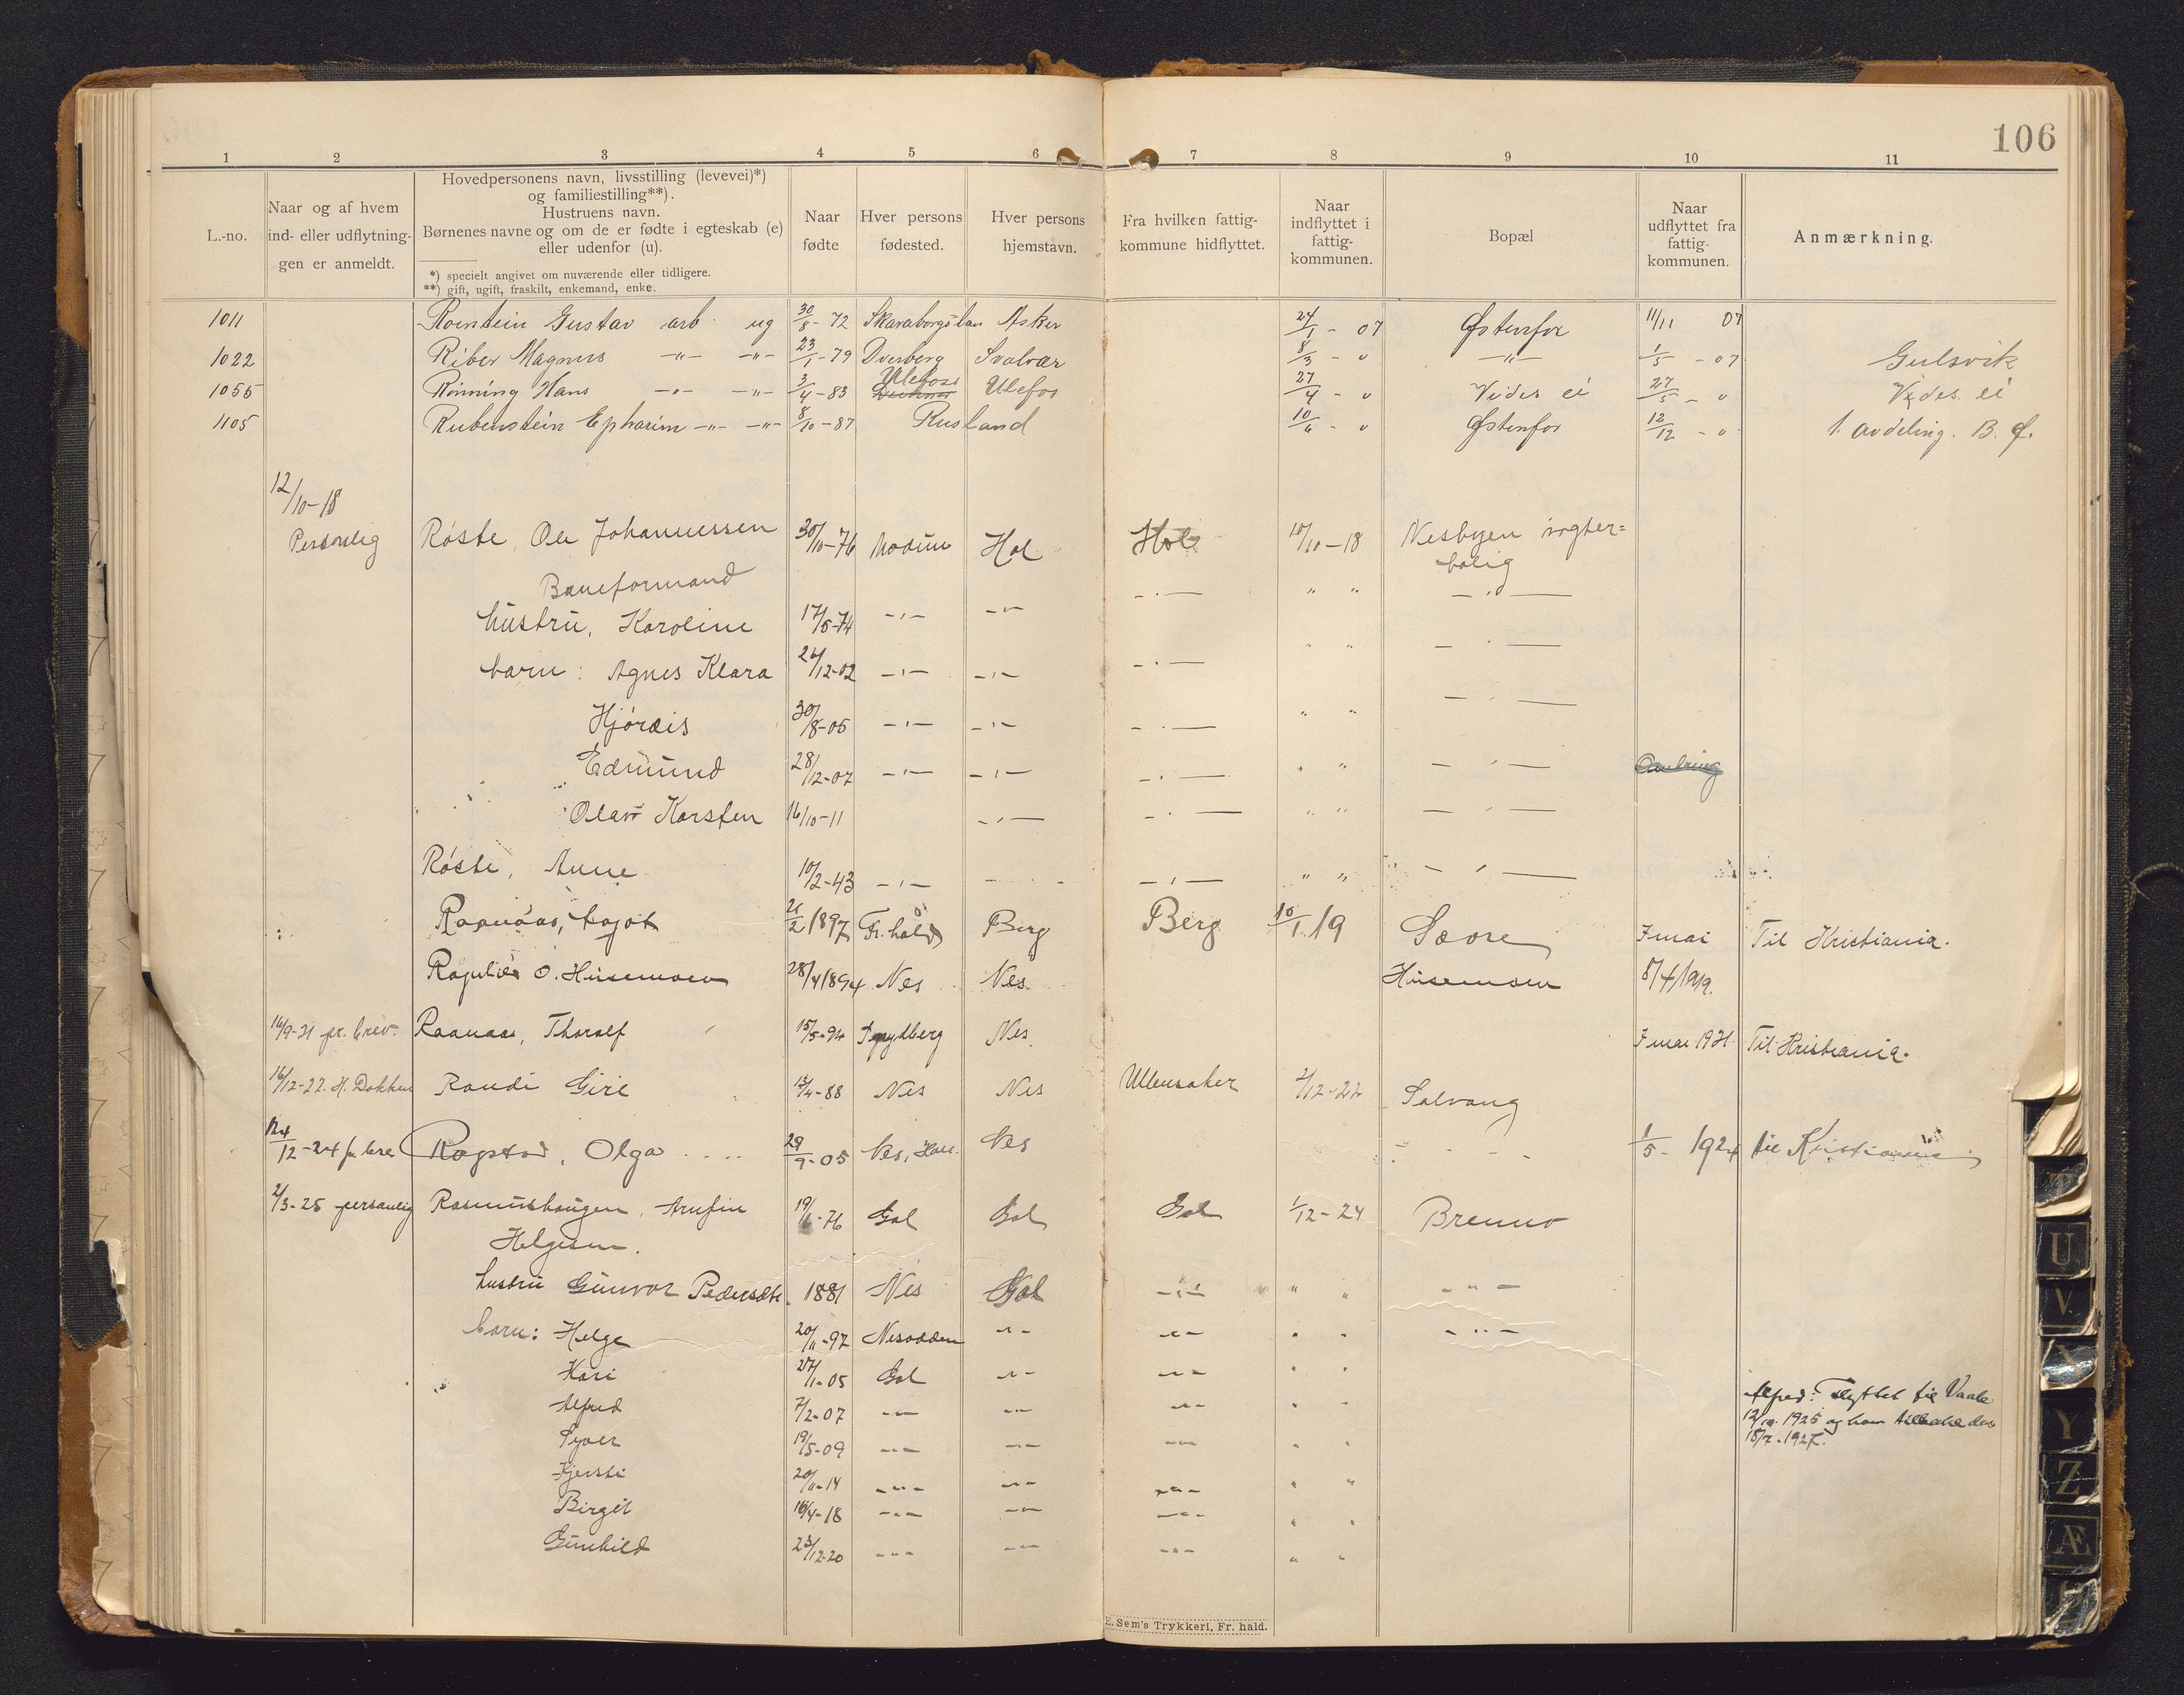 106
1 2 3 4 5 6 7 8 9 10 11
L.-no.
Naar og af hvem
ind- eller udflytnin-
gen er anmeldt.
Hovedpersonens navn, livsstilling (levevei)*)
og familiestilling**).
Hustruens navn.
Børnenes navne og om de er fødte i egteskab (e)
eller udenfor (u).
*) specielt angivet om nuværende eller tidligere.
**) gift, ugift, fraskilt, enkemand, enke.
Naar
fødte
Hver persons
fødested.
Hver persons
hjemstavn.
Fra hvilken fattig-
kommune hidflyttet.
Naar
indflyttet i
fattig-
kommunen.
Bopæl
Naar
udflyttet fra
fattig-
kommunen.
Anmærkning.
1011 Gustav arb ug 30/8-72 Asker 24/1-07 Østenfor 11/11 07
1022 Riber Magnus -"- -"- 23/1-79 Dverberg Svolvær 8/3 - " -"- 1/5 - 07 Gulsvik
1055 Rønning Hans -"- -"- 3/4-83 Ulefoss Ulefos 27/4 - " Vides ei 27/5 - " Vides ei
1105 Rubenstein Epharim -"- -"- 8/10-87 Rusland 10/6 - " Østenfor 12/12 - " 1. avdeling. B. Ø.
12/10-18
Personlig Røste, Ole Johannessen 30/10-76 Modum Hol Hol 10/10-18 Nesbyen vogter=
bolig
Baneformand
hustru, Karoline 17/5-74 -"- -"- -"- " " -"-
barn: Agnes Klara 26/12-02 -"- -"- -"- " " -"-
Hjørdis 30/8-05 -"- -"- -"- " " -"-
Edmund 28/12-07 -"- -"- -"- " " -"-
Olav Karsten 16/10-11 -"- -"- " " -"-
Røste, Anne 10/2-43 -"- -"- " " -"-
Raanaas, 21/2 1897 Fr.hald Berg Berg 10/1 19 Sævre 7 mai Til Kristiania.
O. Husemoen 28/4 1894 Nes Nes Husemoen 8/4 1919.
16/9-21 pr. brev. Raanaas, Thoralf 15/5-94 Spydberg Nes. 7 mai 1921. Til Kristiania.
16/12-22. H. Dokken Randi Gire 15/4-88 Nes Nes Ullensaker 2/12-22 Solvang
24/12-24 pr. brev Rogstad, Olga 29/9-05 Nes, Hall. Nes 1/5- 1924 til Kristiania
2/3-25 personlig Rasmushaugen, Arnfin 19/6-76 Gol Gol Gol 1/12-24 Brenno
Helgesen.
hustru Gunvor Pedersdtr. 1881 Nes Gol -"- " " -"-
barn: Helge 20/11-97 Nesodden -"- -"- " " -"-
Kari 27/1-05 Gol -"- -"- " "
Alfred 7/2-07 -"- -"- -"- " " Alfred: Flyttet til Vaale
12/10 1925 og kom tilbake der
15/7-1927.
Syver 19/5-09 -"- -"- -"- " "
Kjersti 20/11-14 -"- -"- -"- " "
Birgit 16/4-18 -"- -"- -"- " "
Gunhild 23/12-20 -"- -"- -"- " "
E. Sem's Trykkeri, Fr. hald.
U
V
X
Y
Z
Æ